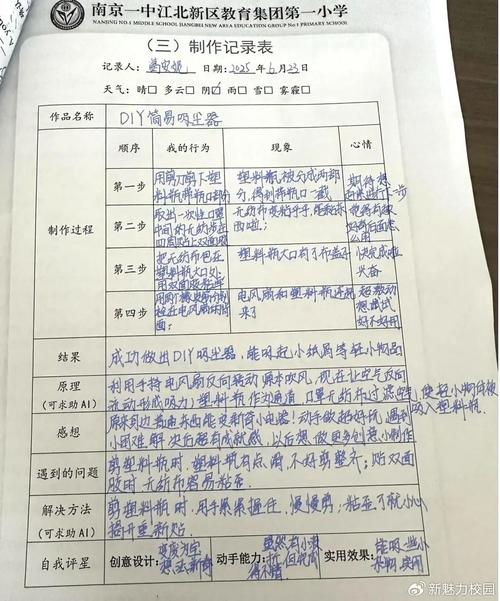 南京一中江北新区教育集团第一小学
NANJING NO.1 MIDDLE SCHOOL JIANGBEI NEW AREA EDUCATION GROUP NO.1 PRIMARY SCHOOL
（三）制作记录表
记录人： 日期：2025年6月23日
天气：晴□ 多云□ 阴☑ 雨□ 雪□ 雾霾□
作品名称 DIY简易吸尘器
制作过程
顺序 我的行为 现象 心情
第一步
用剪刀剪下塑
料瓶带瓶口部分
塑料瓶被分成两部
分，得到带瓶口一截
期待，想
下一步
第二步
取出一次性口罩
中间的无纺布，在
四周贴上双面胶
无纺布变粘手手，能粘东
西啦；
觉得有趣
好奇后面怎
么用
第三步
把无纺布包在
塑料瓶大口处，
用双面胶粘牢
塑料瓶大口有了布盖子
快完成啦
兴奋
第四步
用两个橡皮筋分别
拴在电风扇两侧
电风扇和塑料瓶连起
来了
超激动
想试试
好不好用
结果
成功做出DIY吸尘器，能吸起小纸屑等轻小物品
原理
（可求助AI）
利用手持电风扇反向转动（原本吹风，现在让空气反向
流动形成吸力）塑料瓶作沟通道，口罩无纺布过滤空气，使轻小物体被
吸入塑料瓶
感想
原来身边普通东西能变新奇小电器！动手做超好玩，遇到
小困难解决后超有成就感，以后想做更多创意小制作
遇到的问题
剪塑料瓶时，塑料瓶有点滑，不好剪整齐；贴双面
胶时，无纺布容易粘歪。
解决方法
（可求助AI）
剪塑料瓶时，用手紧紧握住，慢慢剪；粘歪了就小心
揭开重新贴
自我评星
创意设计： 变废为宝
想法新奇
动手能力： 虽然有小波
折，但完成
得不错
实用效果： 能吸一些小
杂物，实用
@新魅力校园